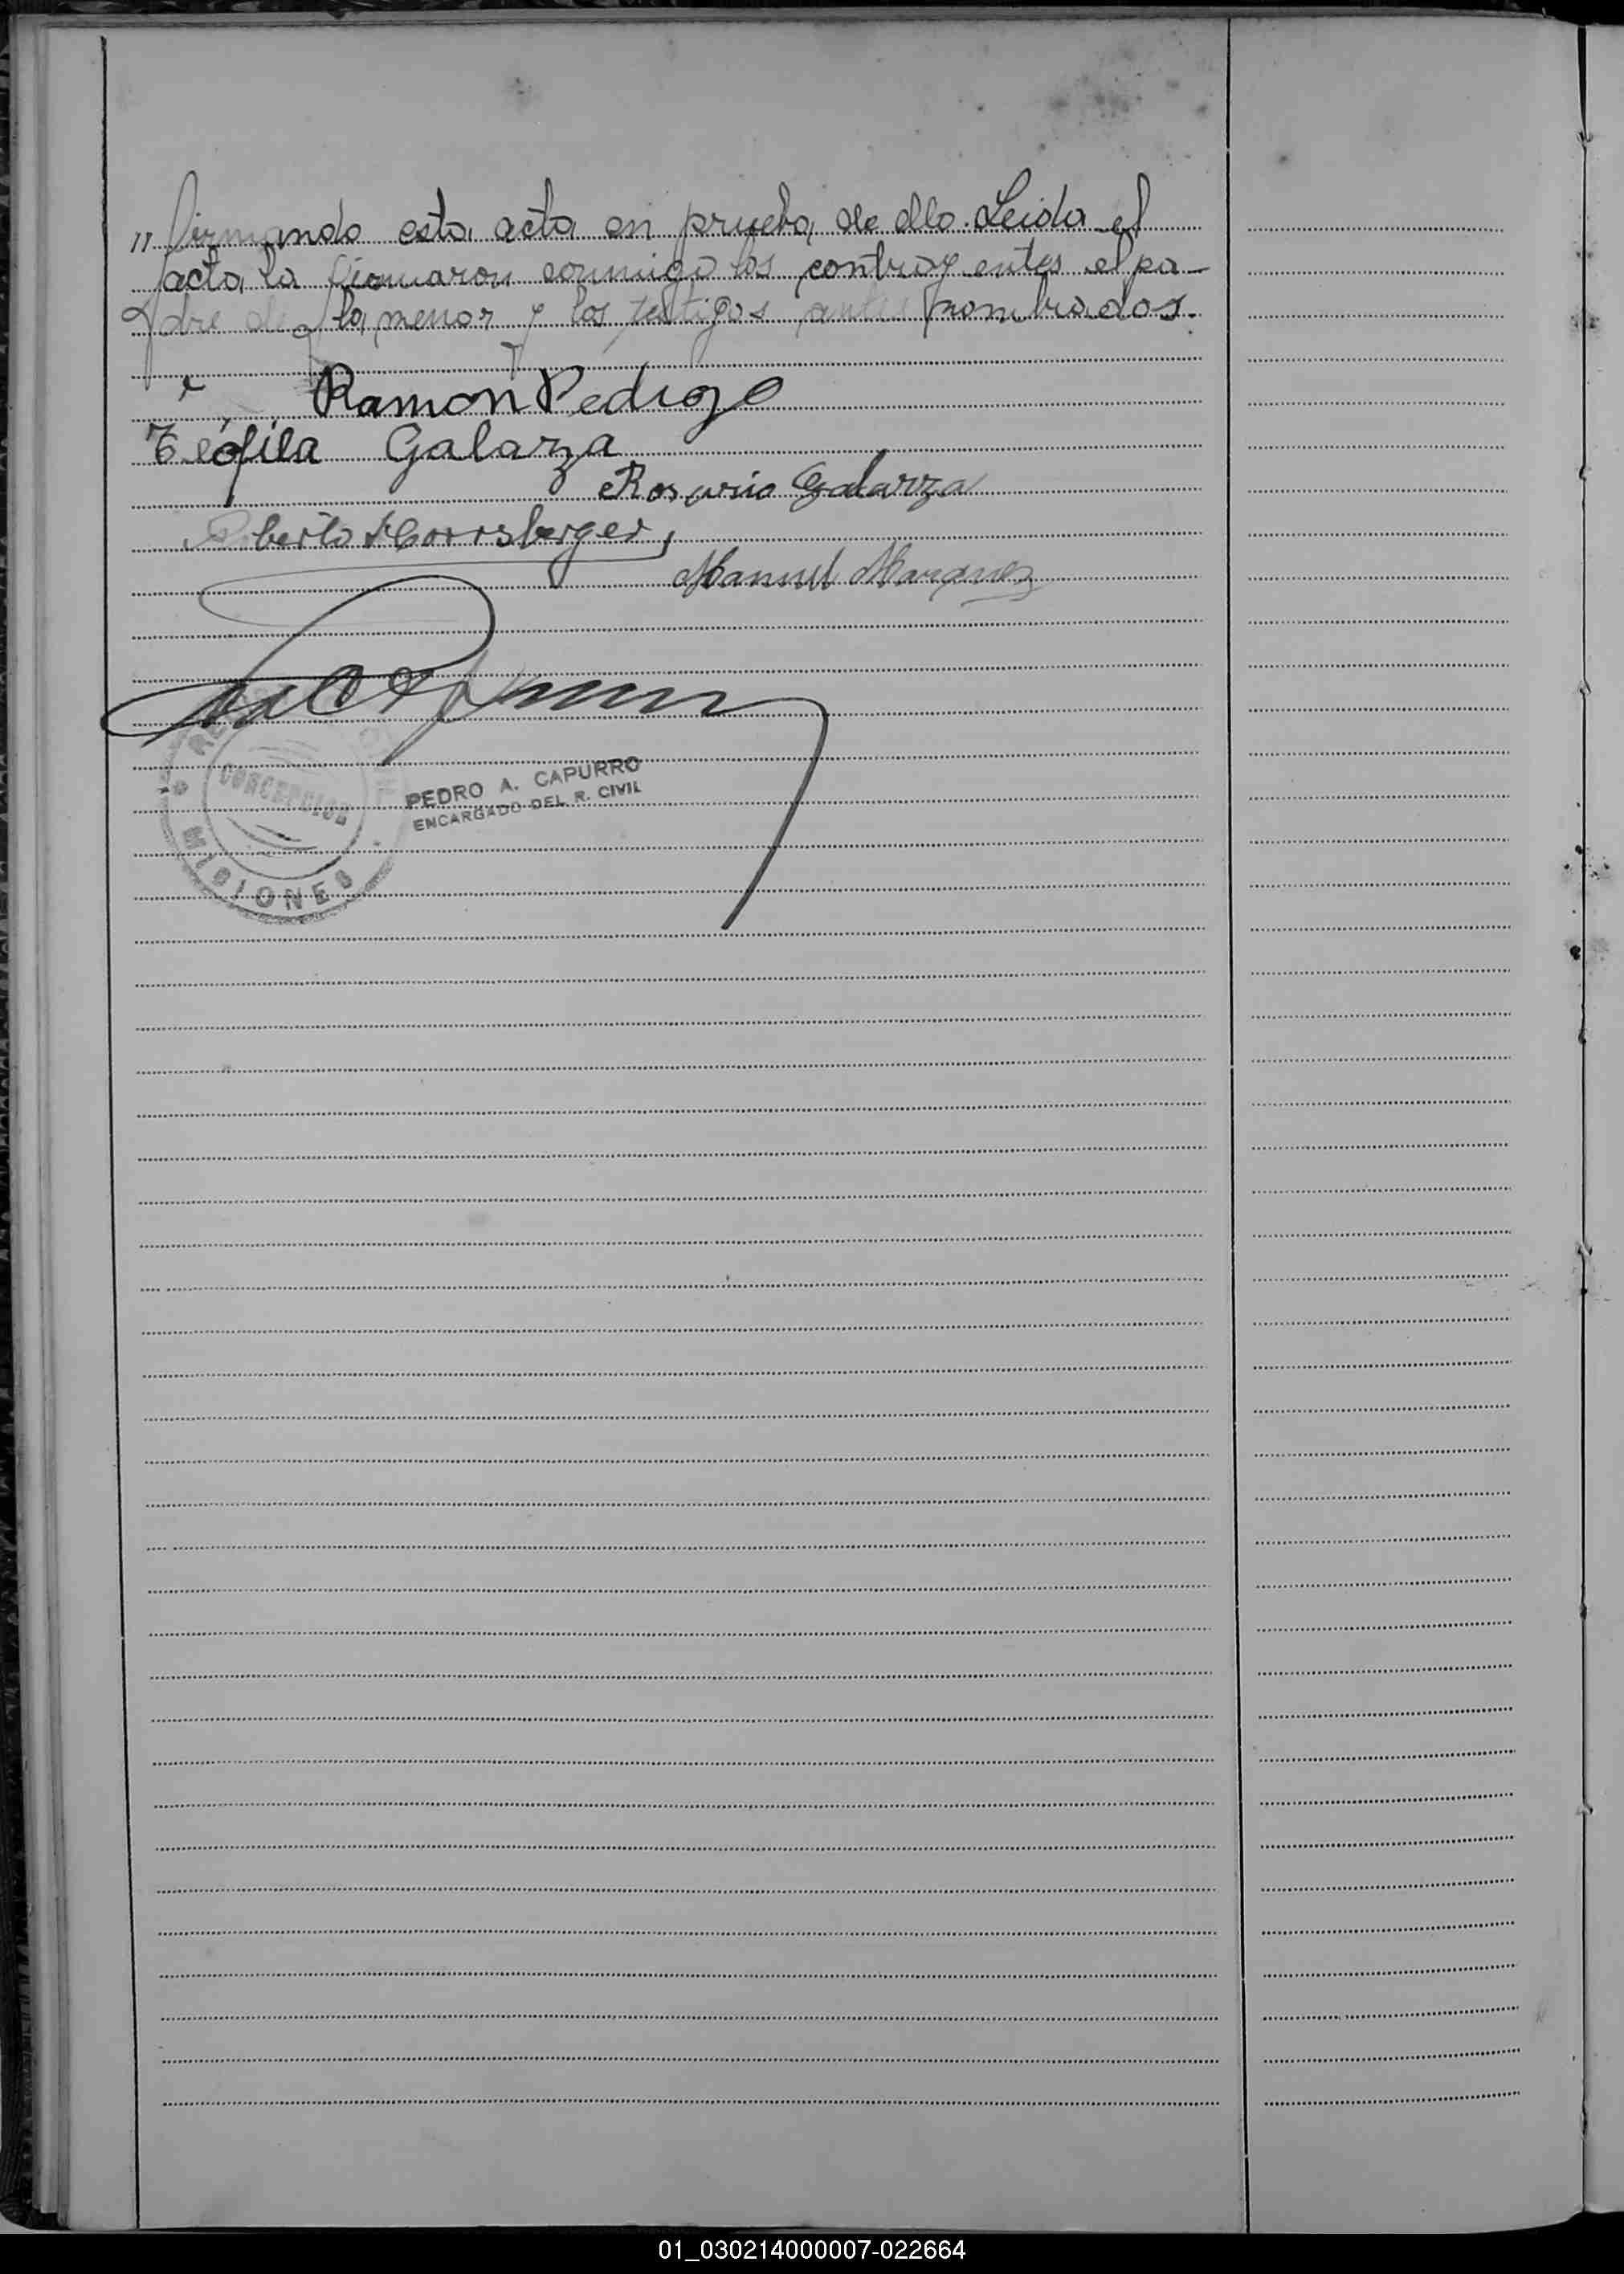 " firmando esta acta en prueba de ello. Leida el
acta la firmaron conmigo los contrayentes el pa-
dre de la menor y los testigos antes nombrados.
Ramon Pedrozo
Teófila Galarza
Rosario Galarza
Manuel Marquez
CONCEPCION
MISIONES
PEDRO A. CAPURRO
ENCARGADO DEL R. CIVIL
01_030214000007-022664